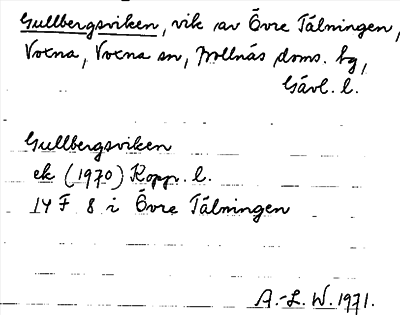 Gullbergsviken, vik av Övre Tälningen,
Voxna, Voxna sn, Bollnäs doms. hg,
Gävl. l.
Gullbergsviken
ek (1970) Kopp. l.
14 F 8 i Övre Tälningen
A.-L. W. 1971.